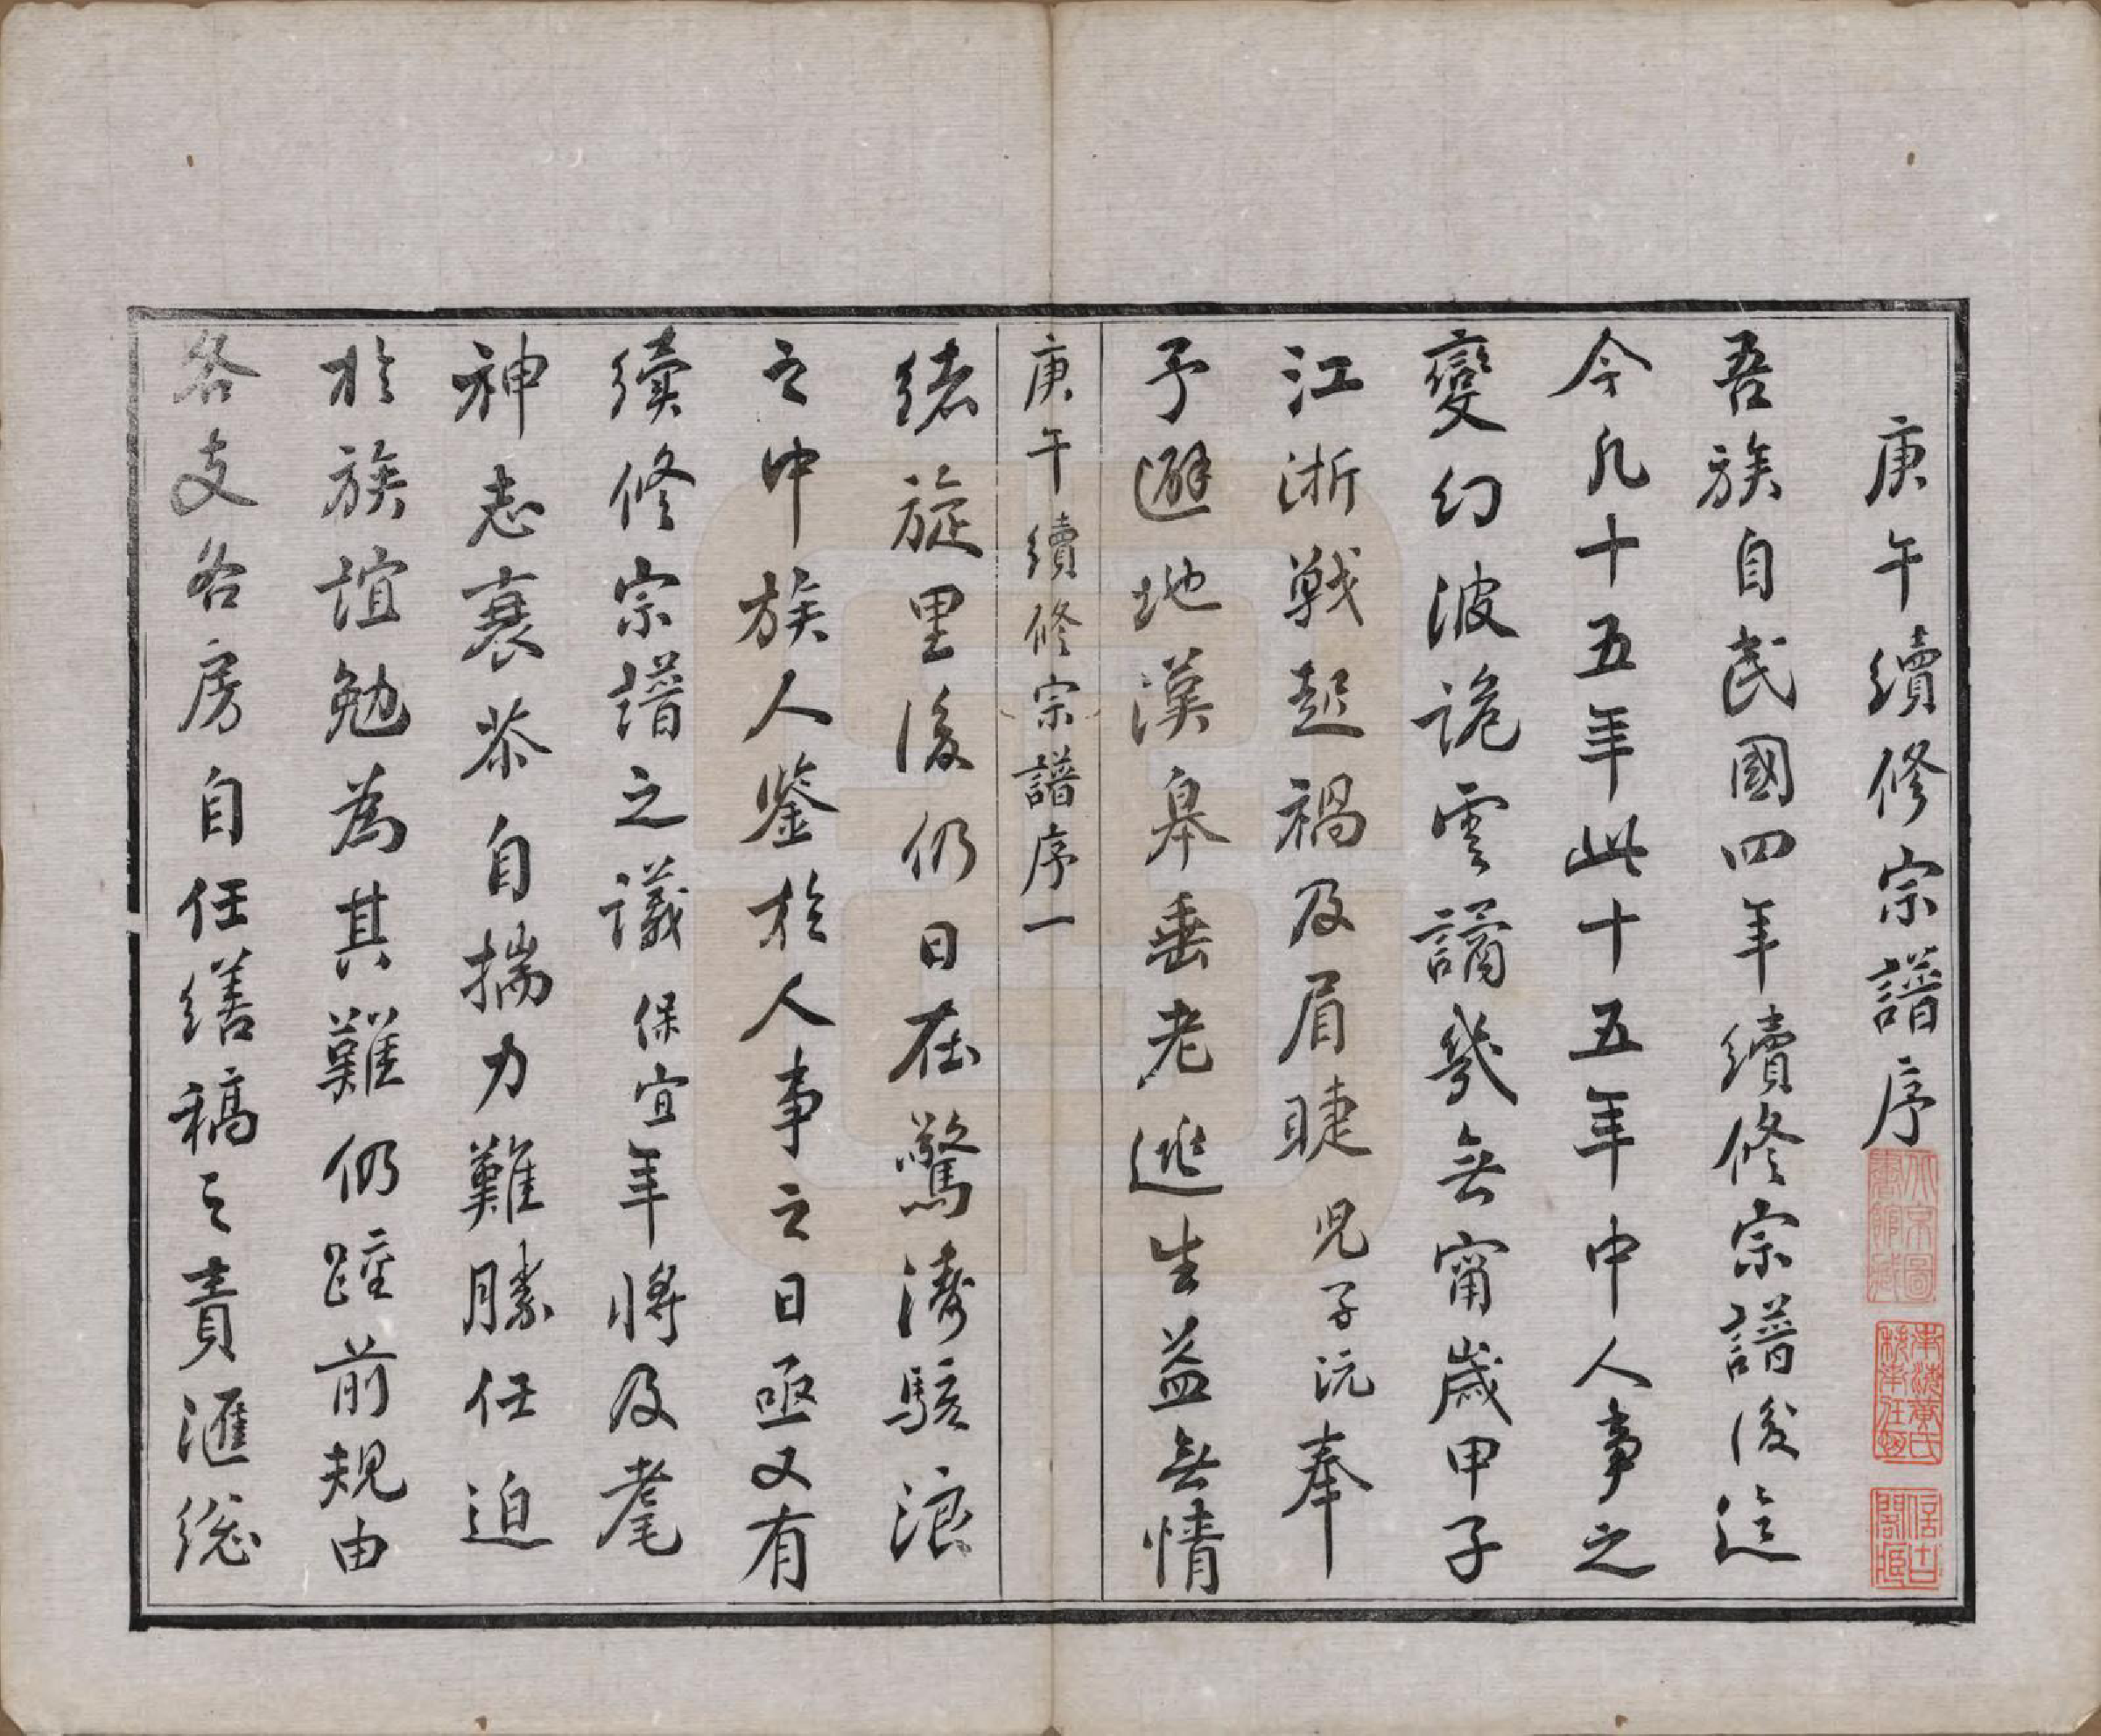 庚午續修宗譜序
吾族自民國四年續修宗譜後迄
今凡十五年此十五年中人事之
變幻波詭雲譎幾無甯歲甲子
江浙戰起禍及眉睫兒子沅奉
予避地漢皋垂老逃生益無情
庚午續修宗譜序一
緒旋里後仍日在驚濤駭浪
之中族人鑒於人事之日亟又有
續修宗譜之議保宜年將及耄
神志衰茶自揣力難勝任迫
於族誼勉為其難仍蹱前規由
各支各房自任繕稿之責滙總